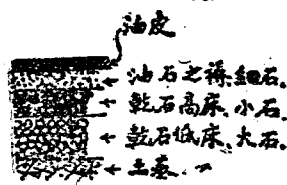 油皮
油石之褥、細石、
乾石高床、小石、
乾石低床、大石、
土基、